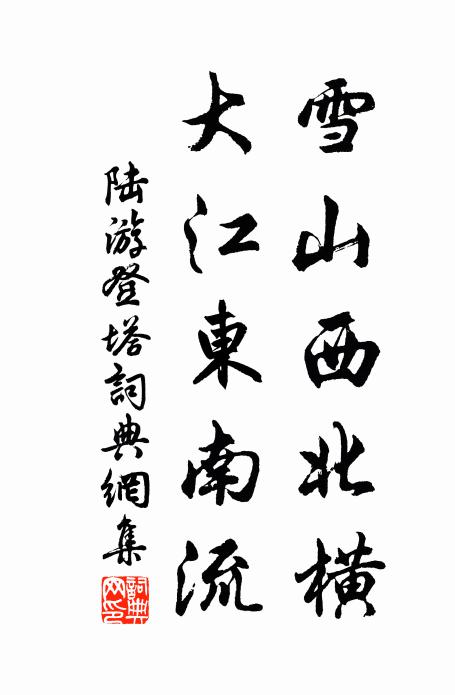 雪山西北橫
大江東南流
陸游登塔詞典網集
詞典網印